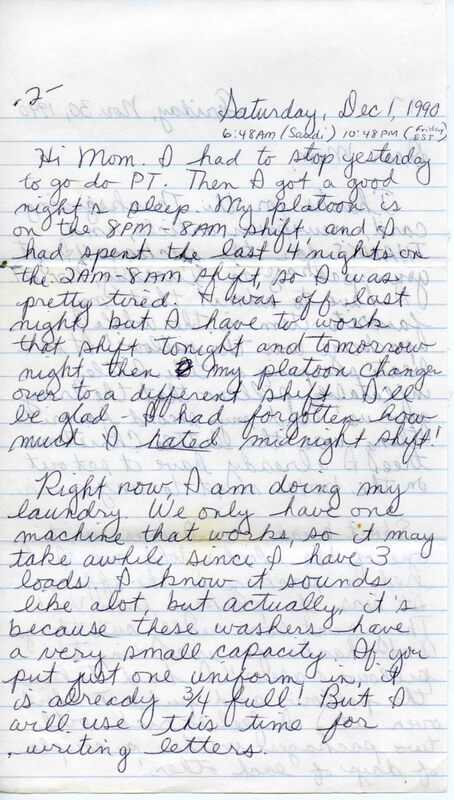 -2-
Saturday, Dec 1, 1990
6:48AM (Saudi) 10:48PM (Friday EST)
Hi Mom. I had to stop yesterday
to go do PT. Then I got a good
night's sleep. My platoon is
on the 8PM-8AM shift and I
had spent the last 4 nights on
the 2AM-8AM shift, so I was
pretty tired. I was off last
night, but I have to work
that shift tonight and tomorrow
night, then my platoon changes
over to a different shift. I'll
be glad - I had forgotten how
much I hated midnight shift!
Right now I am doing my
laundry. We only have one
machine that works, so it may
take awhile since I have 3
loads. I know it sounds
like alot, but actually, it's
because these washers have
a very small capacity. If you
put just one uniform in, it
is already 3/4 full! But I
will use this time for
writing letters.